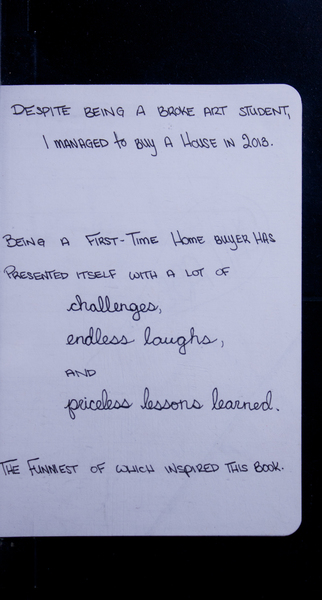 DESPITE BEING A BROKE ART STUDENT,
I MANAGED to BUY A HOUSE IN 2013.
BEING A FIRST-TIME HOME BUYER HAS
PRESENTED ITSELF WITH A LOT OF
challenges,
endless laughs,
AND
priceless lessons learned.
THE FUNNIEST OF WHICH INSPIRED THIS BOOK.